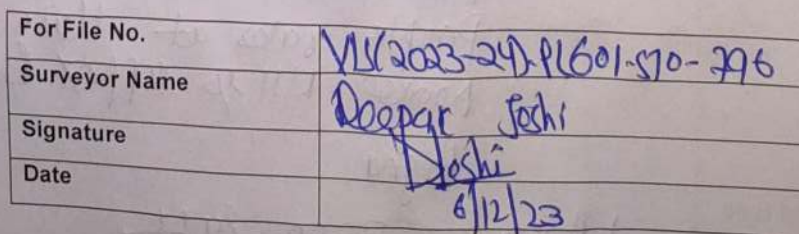 For File No. VIS(2023-24)-PL601-510-796
Surveyor Name Deepak Joshi
Signature DJoshi
Date 6/12/23